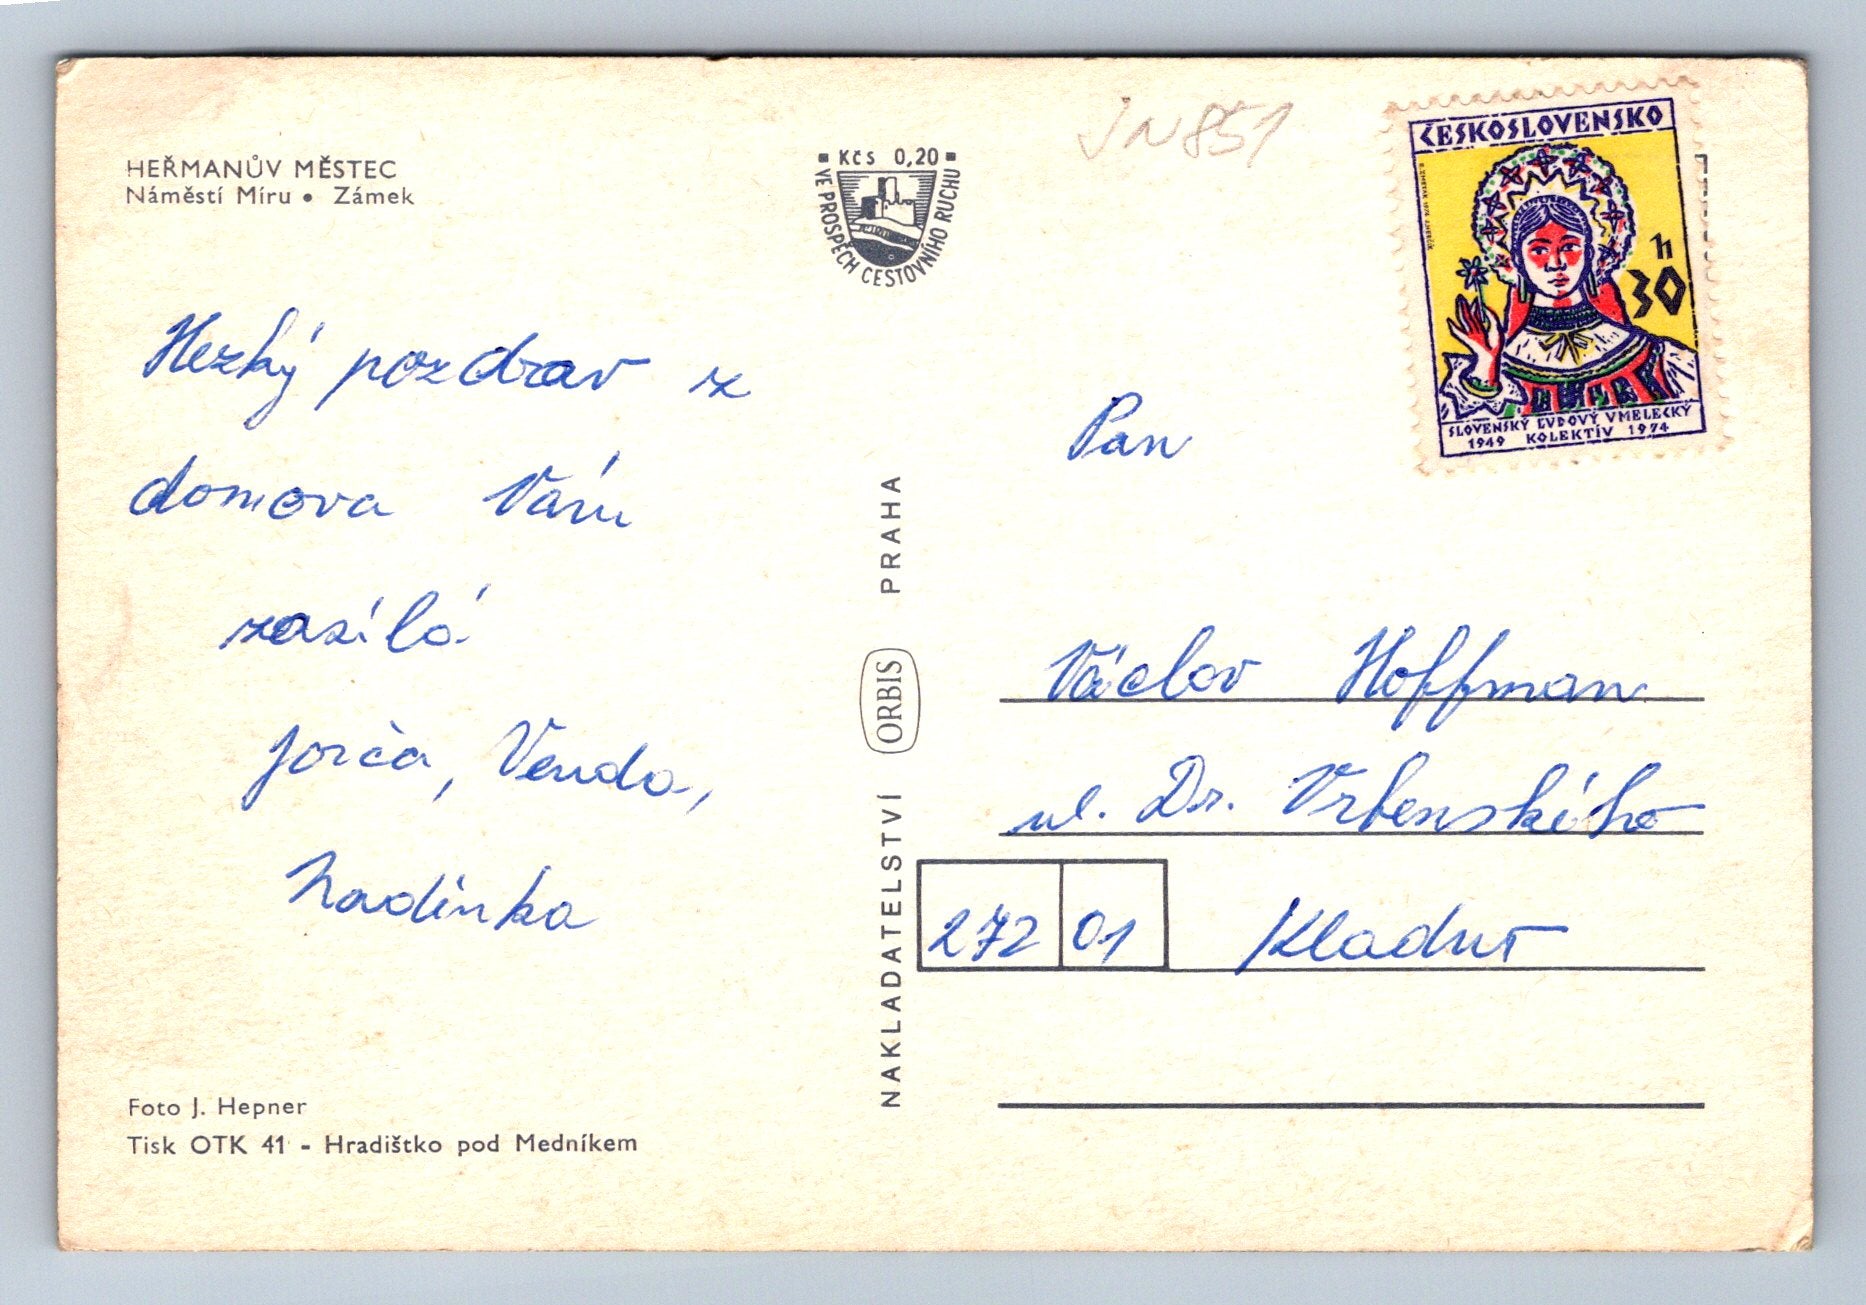 HEŘMANŮV MĚSTEC
Náměstí Míru • Zámek
Hezký pozdrav z
domova Vám
zasílá
Jorča, Venda,
Nadinka
Foto J. Hepner
Tisk OTK 41 - Hradištko pod Medníkem
Kčs 0,20
VE PROSPĚCH CESTOVNÍHO RUCHU
NAKLADATELSTVÍ ORBIS PRAHA
JN851
ČESKOSLOVENSKO
h
30
SLOVENSKÝ ĽUDOVÝ UMELECKÝ
1949 KOLEKTÍV 1974
Pan
Václav Hoffman
ul. Dr. Vrbenského
272 01 Kladno